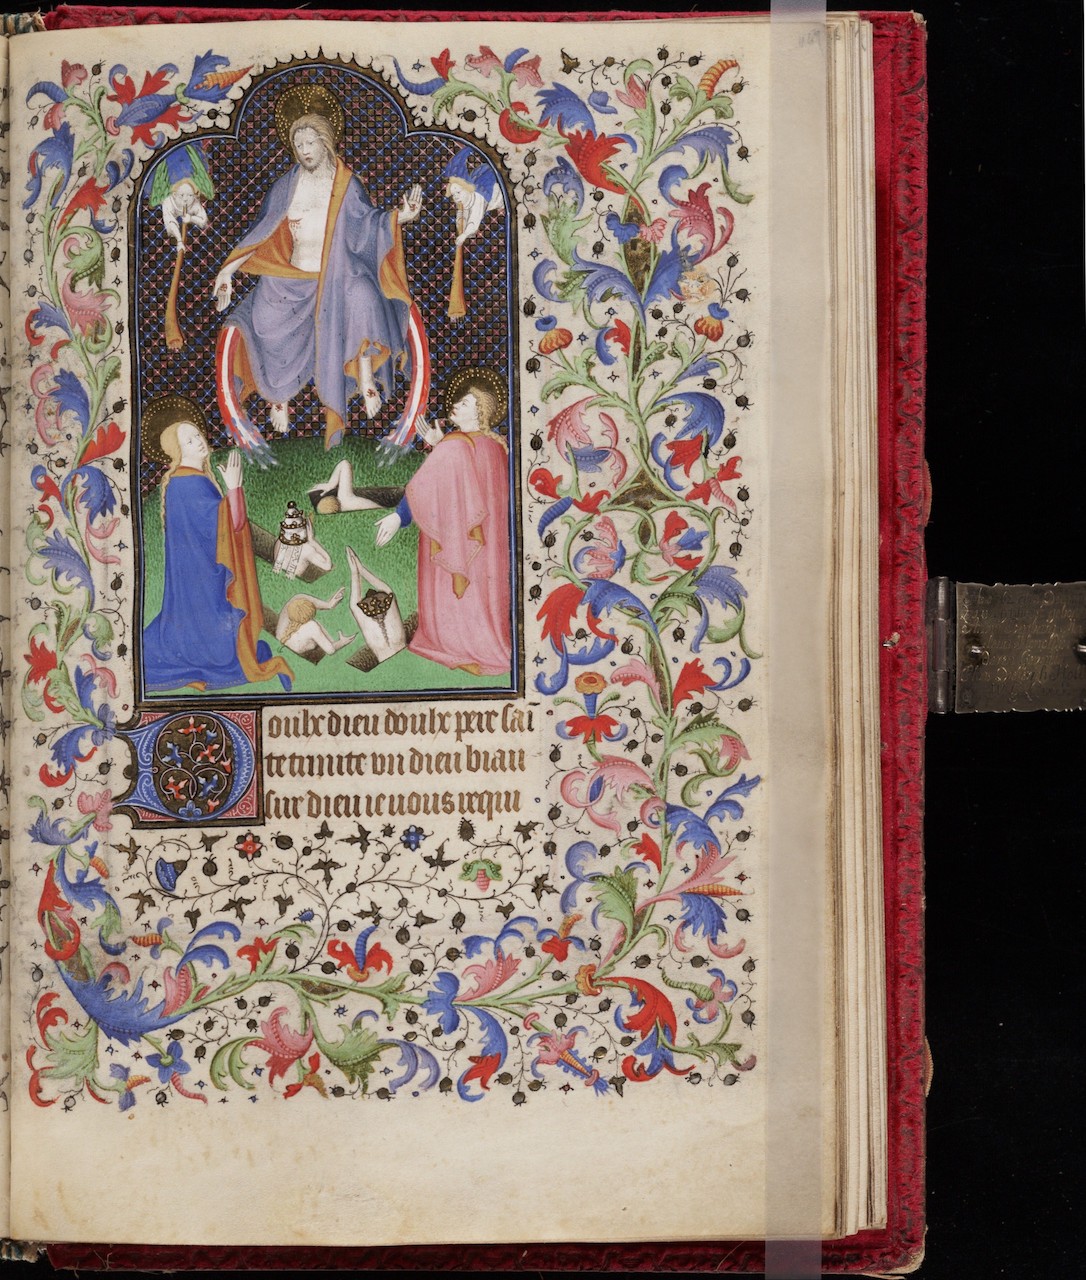 Doulx dieu doulx pere sai
te trinite vn dieu biau
sur dieu ie uous requi